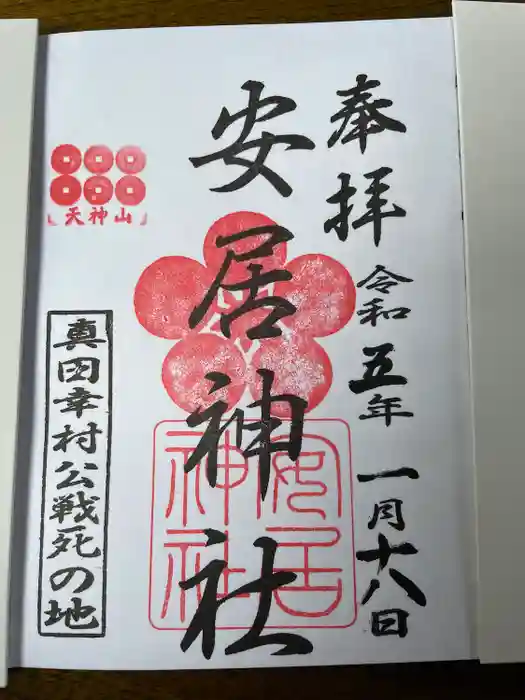 奉拝
令和五年 一月十八日
安居神社
安居
神社
天神山
真田幸村公戦死の地